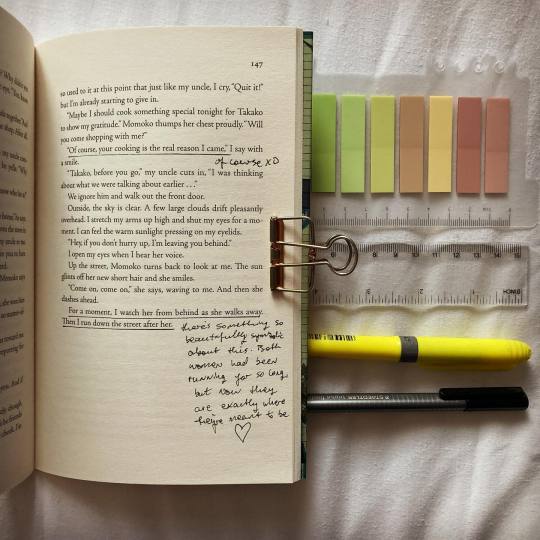 147
so used to it at this point that just like my uncle, I cry, "Quit it!"
but I'm already starting to give in.
"Maybe I should cook something special tonight for Takako
to show my gratitude." Momoko thumps her chest proudly. "Will
you come shopping with me?"
"Of course, your cooking is the real reason I came," I say with
a smile.
of course XD
"Takako, before you go," my uncle cuts in, "I was thinking
about what we were talking about earlier . . ."
We ignore him and walk out the front door.
Outside, the sky is clear. A few large clouds drift pleasantly
overhead. I stretch my arms up high and shut my eyes for a mo-
ment. I can feel the warm sunlight pressing on my eyelids.
"Hey, if you don't hurry up, I'm leaving you behind."
I open my eyes when I hear her voice.
Up the street, Momoko turns back to look at me. The sun
glints off her new short hair and she smiles.
"Come on, come on," she says, waving to me. And then she
dashes ahead.
For a moment, I watch her from behind as she walks away.
Then I run down the street after her.
there's something so
beautifully symbolic
about this. Both
women had been
running for so long,
but now they
are exactly where
they're meant to be
STAEDTLER
INCH